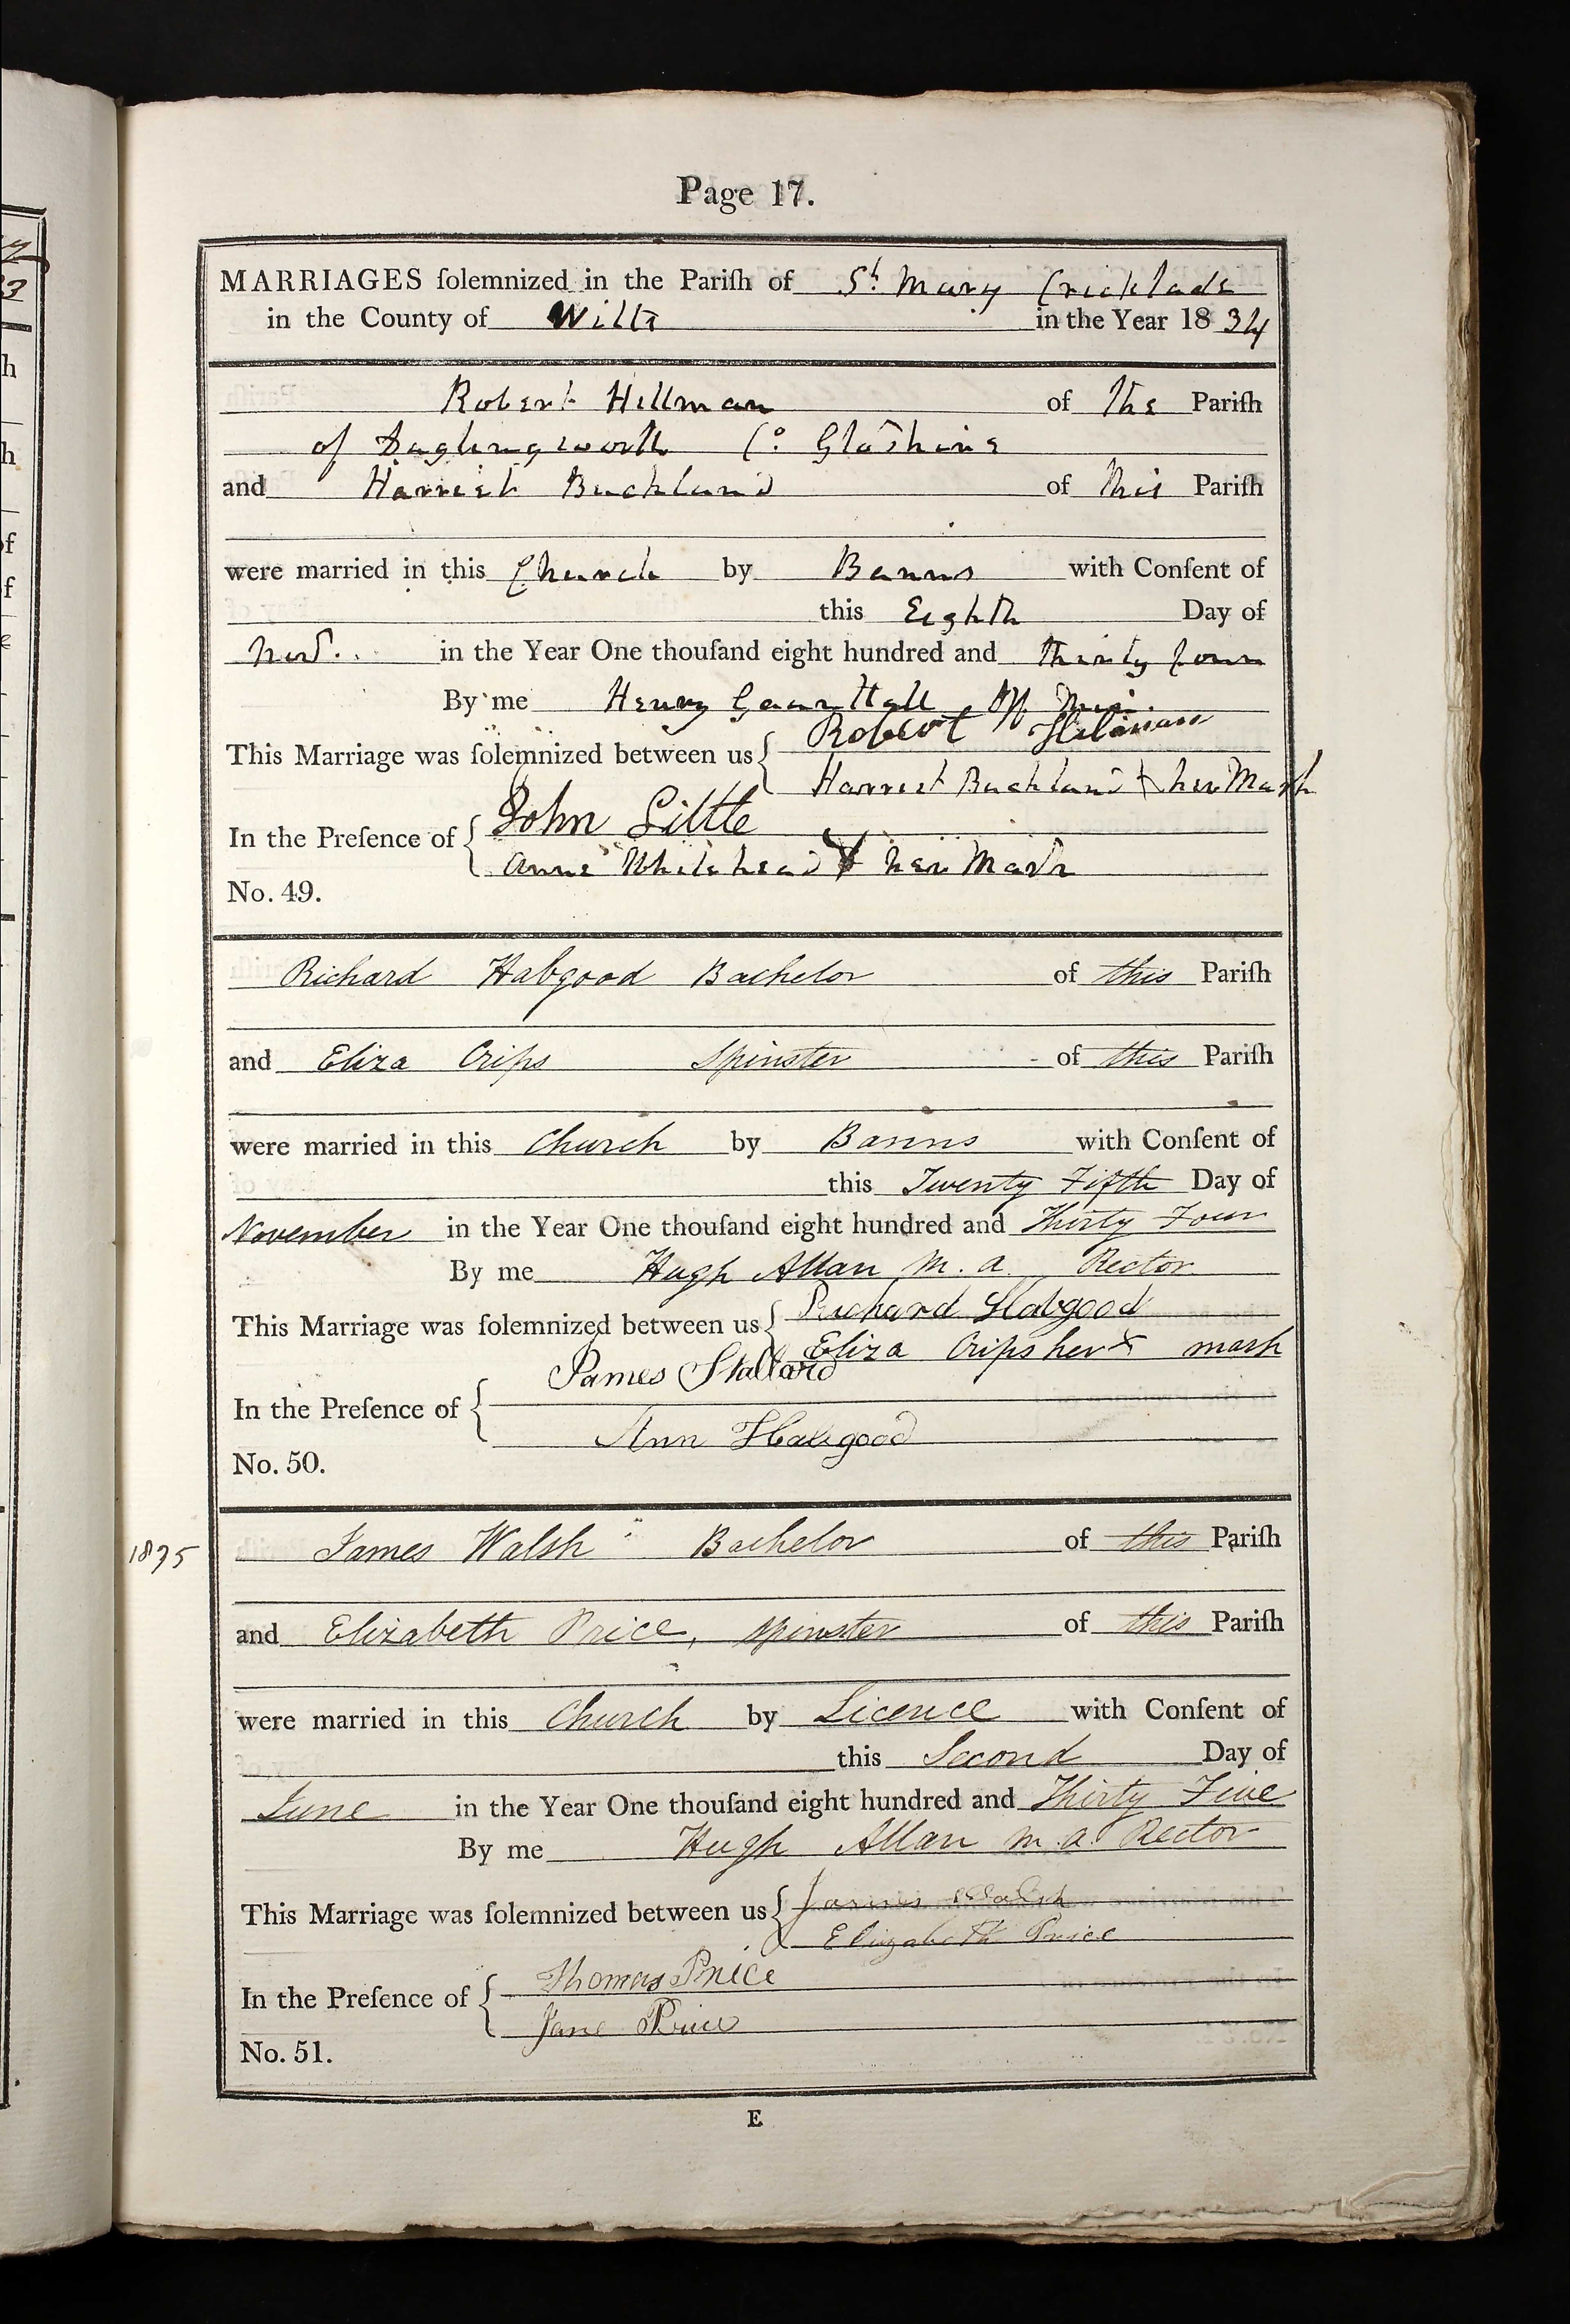 Page 17.
MARRIAGES ſolemnized in the Pariſh of St. Mary Cricklade
in the County of Wilts in the Year 18 34
Robert Hillman of the Pariſh
of Daglingworth Co: Glo'shire
and Harriet Buckland of this Pariſh
were married in this Church by Banns with Conſent of
this Eighth Day of
Novr. in the Year One thouſand eight hundred and thirty four
By me Henry Off. Min.
This Marriage was ſolemnized between us { Robert Hillman
Harriet Buckland X her Mark
In the Preſence of { John Little
Anne Whitehead X her Mark
No. 49.
Richard Habgood Bachelor of this Pariſh
and Eliza Crips Spinster of this Pariſh
were married in this Church by Banns with Conſent of
this Twenty Fifth Day of
November in the Year One thouſand eight hundred and Thirty Four
By me Hugh Allan M. A. Rector
This Marriage was ſolemnized between us { Richard Habgood
Eliza Crips her X mark
In the Preſence of { James Stallard
Ann Habgood
No. 50.
1835
James Walsh Bachelor of this Pariſh
and Elizabeth Price, Spinster of this Pariſh
were married in this Church by Licence with Conſent of
this Second Day of
June in the Year One thouſand eight hundred and Thirty Five
By me Hugh Allan M. A. Rector
This Marriage was ſolemnized between us { James Walsh
Elizabeth Price
In the Preſence of { Thomas Price
Jane Price
No. 51.
E